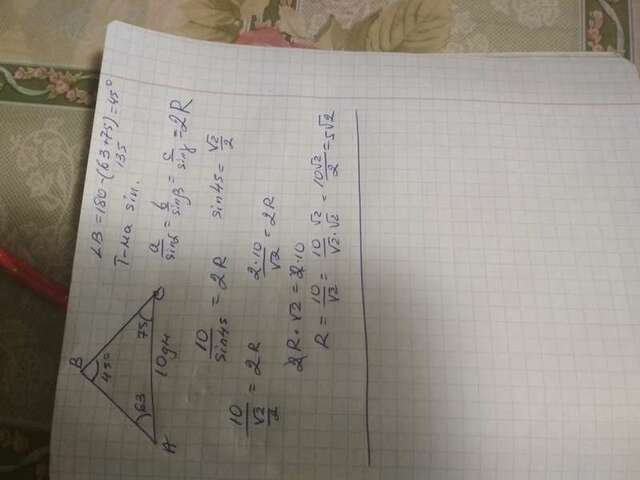 ∠B = 180 - (63+75) = 45°
135
Т-ма sin.
a/sinα = b/sinβ = c/sinγ = 2R
B
45°
63
75
A
C
10 дм
10/sin45 = 2R
sin45 = √2/2
10/(√2/2) = 2R
2·10/√2 = 2R
2R·√2 = 2·10
R = 10/√2 = 10 √2/√2·√2 = 10√2/2 = 5√2